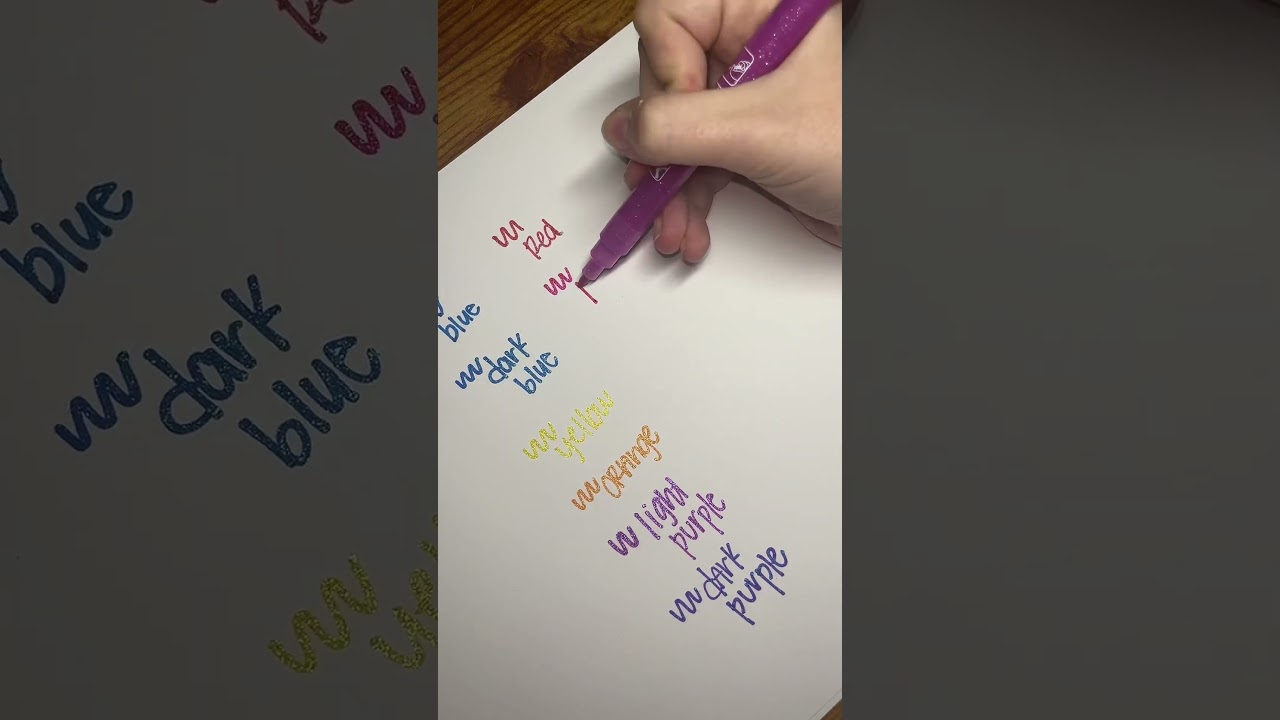 red
blue
dark
blue
yellow
orange
light
purple
dark
purple